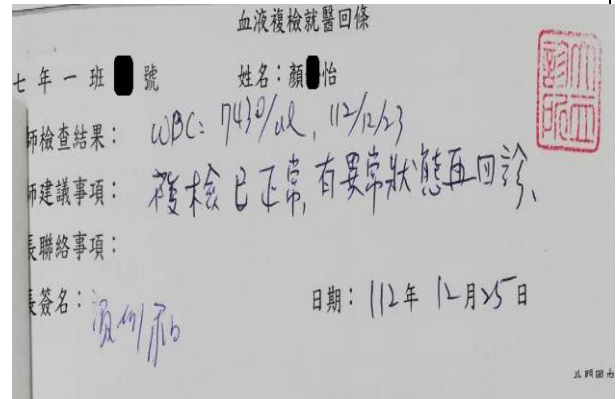 血液複檢就醫回條
七年一班 號 姓名：顏 怡
師檢查結果： WBC: 7430/ul, 112/12/23
師建議事項： 複檢已正常, 有異常狀態再回診、
長聯絡事項：
長簽名：
日期：112年12月25日